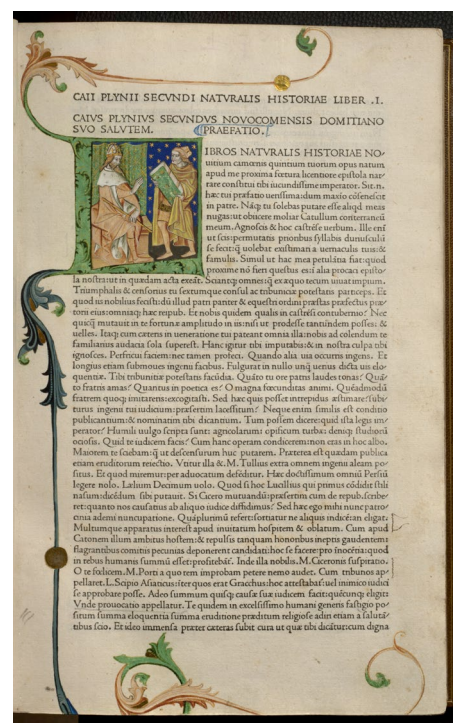 CAII PLYNII SECVNDI NATVRALIS HISTORIAE LIBER .I.
CAIVS PLYNIVS SECVNDVS NOVOCOMENSIS DOMITIANO
SVO SALVTEM. PRAEFATIO.
IBROS NATVRALIS HISTORIAE NO
uitium camœnis quiritium tuorum opus natum
apud me proxima fœtura licentiore epistola nar
rare constitui tibi iucundissime imperator. Sit.n.
hæc tui præfatio uerissima: dum maxīo cōsenescit
in patre. Náq; tu solebas putare esse aliqd meas
nugas: ut obiicere moliar Catullum conterraneū
meum. Agnoscis & hoc castrēse uerbum. Ille eni
ut scis: permutatis prioribus syllabis duriusculū
se fecit: q̄ uolebat existimari a uernaculis tuis: &
famulis. Simul ut hac mea petulātia fiat: quod
proxime nō fieri questus es: i alia procaci episto
la nostra: ut in quædam acta exeāt. Sciantq; omnes: q̄ ex æquo tecum uiuat impium.
Triumphalis & censorius tu sextumque consul ac tribunitiæ potestatis particeps. Et
quod iis nobilius fecisti: dū illud patri pariter & equestri ordini præstas præfectus præ
torii eius: omniaq; hæc reipub. Et nobis quidem qualis in castrēsi contubernio? Nec
quicq̄ mutauit in te fortunæ amplitudo in iis: nisi ut prodesse tantundem posses: &
uelles. Itaq; cum cæteris in uenerationem tui pateant omnia illa: nobis ad colendum te
familiarius audacia sola superest. Hanc igitur tibi imputabis: & in nostra culpa tibi
ignosces. Perfricui faciem: nec tamen profeci. Quando alia uia occurris ingens. Et
longius etiam submoues ingenii facibus. Fulgurat in nullo unq̄ uerius dicta uis elo
quentiæ. Tibi tribunitiæ potestatis facūdia. Quāto tu ore patris laudes tonas? Quā
to fratris amas? Quantus in poetica es? O magna fœcunditas animi. Quēadmodū
fratrem quoq; imitareris: excogitasti. Sed hæc quis posset intrepidus æstimare: subi
turus ingenii tui iudicium: præsertim lacessitum? Neque enim similis est conditio
publicantium: & nominatim tibi dicantium. Tum possem dicere: quid ista legis im
perator? Humili uulgo scripta sunt: agricolarum: opificum turbæ: deniq; studiorū
ociosis. Quid te iudicem facis? Cum hanc operam condicerem: non eras in hoc albo.
Maiorem te sciebam: q̄ ut descensurum huc putarem. Præterea est quædam publica
etiam eruditorum reiectio. Vtitur illa &.M.Tullius extra omnem ingenii aleam po
situs. Et quod miremur: per aduocatum defēditur. Hæc doctissimum omniū Persiū
legere nolo. Lælium Decimum uolo. Quod si hoc Lucillius qui primus cōdidit stili
nasum: dicēdum sibi putauit. Si Cicero mutuandū: præsertim cum de repub. scribe
ret: quanto nos causatius ab aliquo iudice diffidimus? Sed hæc ego mihi nunc patro
cinia ademi nuncupatione. Quāplurimū refert: sortiatur ne aliquis iudicē: an eligat.
Multumque apparatus interest apud inuitatum hospitem & oblatum. Cum apud
Catonem illum ambitus hostem: & repulsis tanquam honoribus ineptis gaudentem:
flagrantibus comitiis pecunias deponerent candidati: hoc se facere: pro inocētia: quod
in rebus humanis summū esset: profitebāt. Inde illa nobilis.M.Ciceronis suspiratio.
O te fœlicem.M.Porti a quo rem improbam petere nemo audet. Cum tribunos ap-
pellaret.L.Scipio Asiaticus: iter quos erat Gracchus: hoc attestabat: uel inimico iudici
se approbare posse. Adeo summum quisq; causæ suæ iudicem facit: quēcunq; eligit:
Vnde prouocatio appellatur. Te quidem in excelsissimo humani generis fastigio po
situm summa eloquentia summa eruditione præditum religiose adiri etiam a salutā
tibus scio. Et ideo immensa præter cæteras subit cura ut quæ tibi dicātur: cum digna